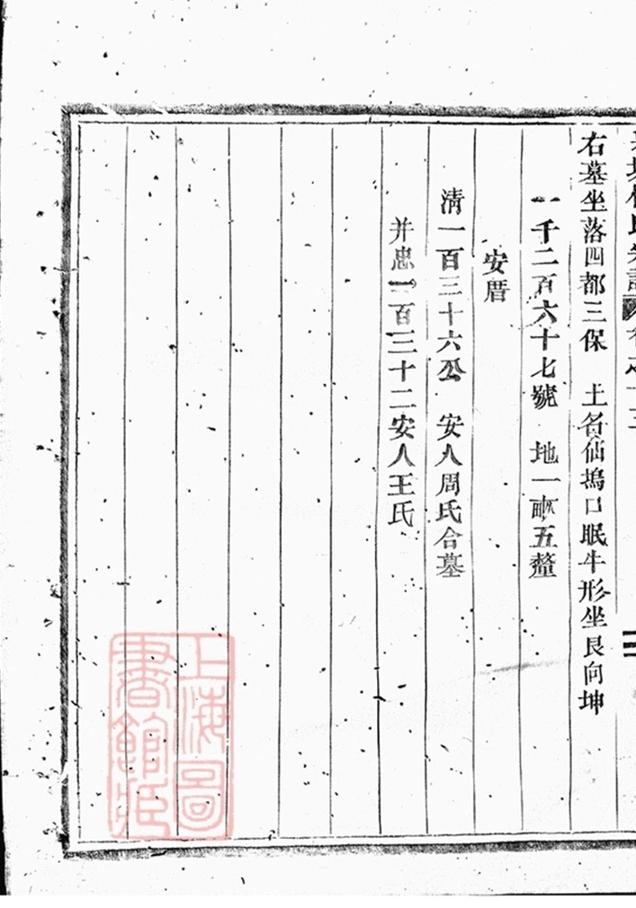 右墓坐落四都三保　土名仙塢口眠牛形坐艮向坤
一千二百六十七號　地一畝五釐
安厝
清一百三十六公　安人周氏合墓
并忠一百三十二安人王氏
上海圖
書館藏